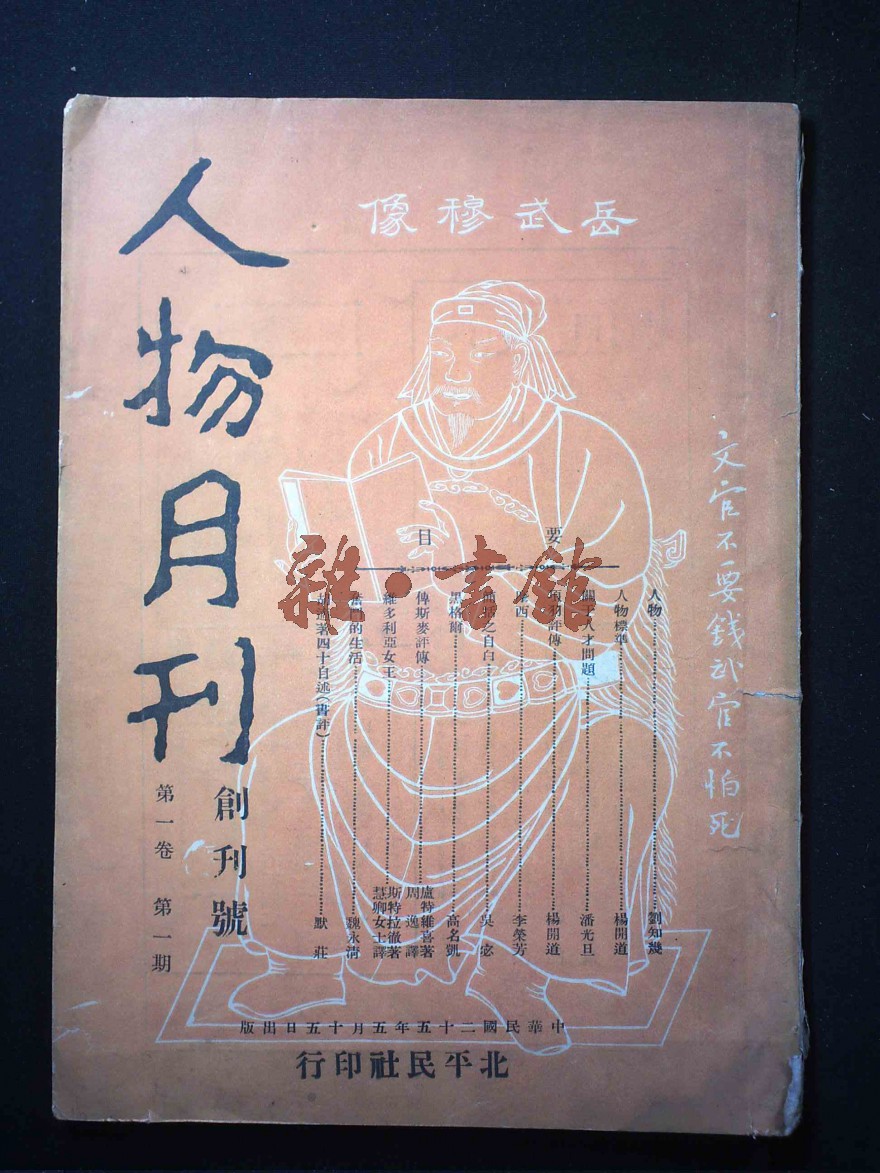 人物月刊
創刊號
第一卷 第一期
岳武穆像
文官不要錢武官不怕死
要目
人物……劉知幾
人物標準……楊開道
關于人才問題……潘光旦
項羽評傳……楊開道
摩西……李榮芳
之自白……吳宓
黑格爾……高名凱
俾斯麥評傳……盧特維喜著 周逸譯
維多利亞女王……斯特拉徹著 慧卿女士譯
奮鬥的生活……魏永清
胡適著四十自述(書評)……默莊
中華民國二十五年五月十五日出版
北平民社印行
雜·書館